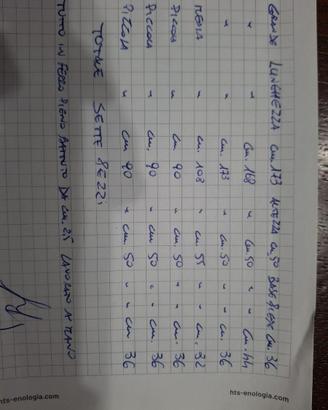 GRANDE LUNGHEZZA cm. 173 ALTEZZA cm. 50 BASE PIEDE cm. 36
" " cm. 168 " cm. 50 " " cm. 44
" " cm. 173 " cm. 50 " " cm. 36
MEDIA " cm. 108 " cm. 55 " " cm. 32
PICCOLA " cm. 90 " cm. 50 " " cm. 36
PICCOLA " cm. 90 " cm. 50 " " cm. 36
PICCOLA " cm. 90 " cm. 50 " " cm. 36
TOTALE SETTE PEZZI
TUTTO IN FERRO PIENO BATTUTO DA cm. 2,5 LAVORATO A MANO
hts-enologia.com
hts-enologia.com